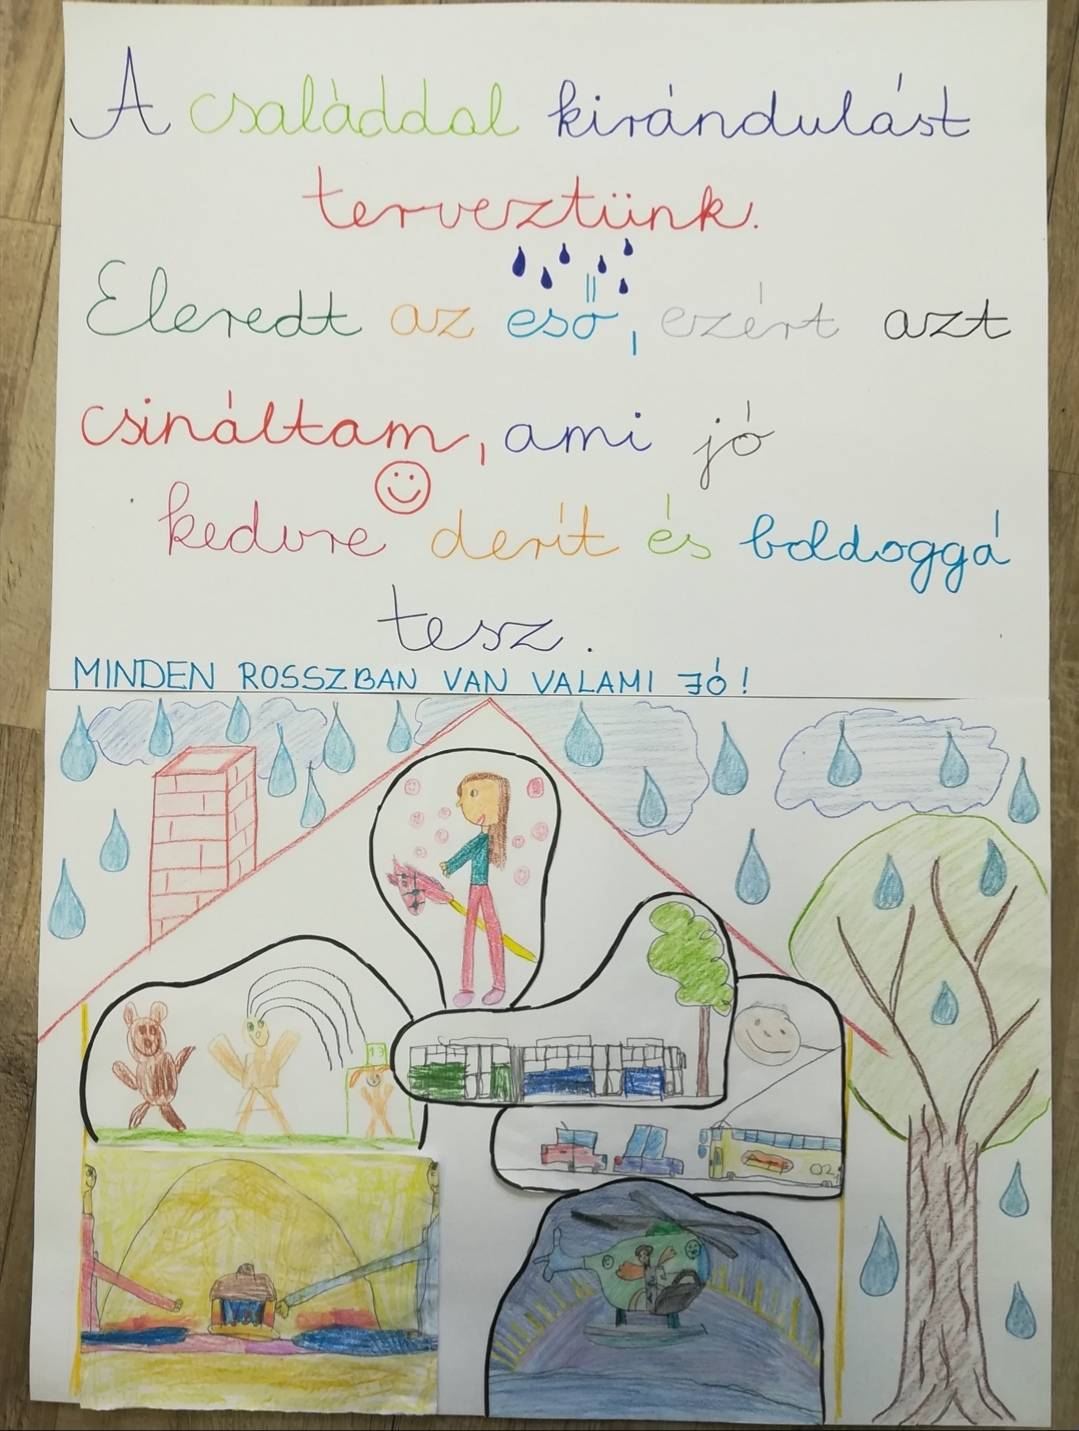 A családdal kirándulást
terveztünk.
Eleredt az eső, ezért azt
csináltam, ami jó
kedvre derít és boldoggá
tesz.
MINDEN ROSSZBAN VAN VALAMI JÓ!